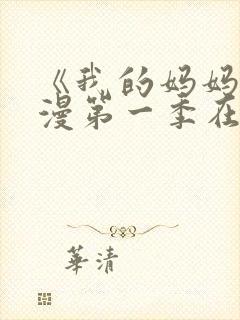 《我的妈妈
漫第一季在
華清